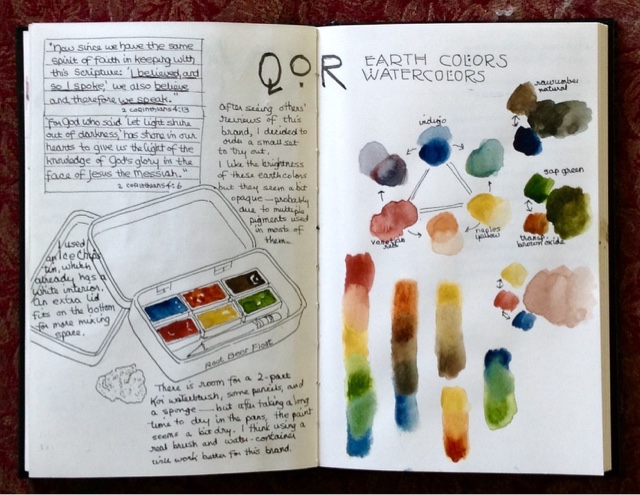 "Now since we have the same
spirit of faith in keeping with
this Scripture: 'I believed, and
so I spoke,' we also believe
and therefore we speak."
2 Corinthians 4:13
"For God who said 'Let light shine
out of darkness,' has shone in our
hearts to give us the light of the
knowledge of God's glory in the
face of Jesus the Messiah."
2 Corinthians 4:6
QoR
After seeing others'
reviews of this
brand, I decided to
order a small set
to try out.
I like the brightness
of these earth colors
but they seem a bit
opaque – probably
due to multiple
pigments used
in most of
them.
I used
an Ice Chips
tin, which
already has a
white interior.
An extra lid
fits on the bottom
for more mixing
space.
Root Beer Float
There is room for a 2-part
Koi waterbrush, some pencils, and
a sponge — but after taking a long
time to dry in the pans, the paint
seems a bit dry. I think using a
real brush and water-container
will work better for this brand.
EARTH COLORS
WATERCOLORS
raw umber
natural
indigo
sap green
venetian
red
naples
yellow
transp.
brown oxide